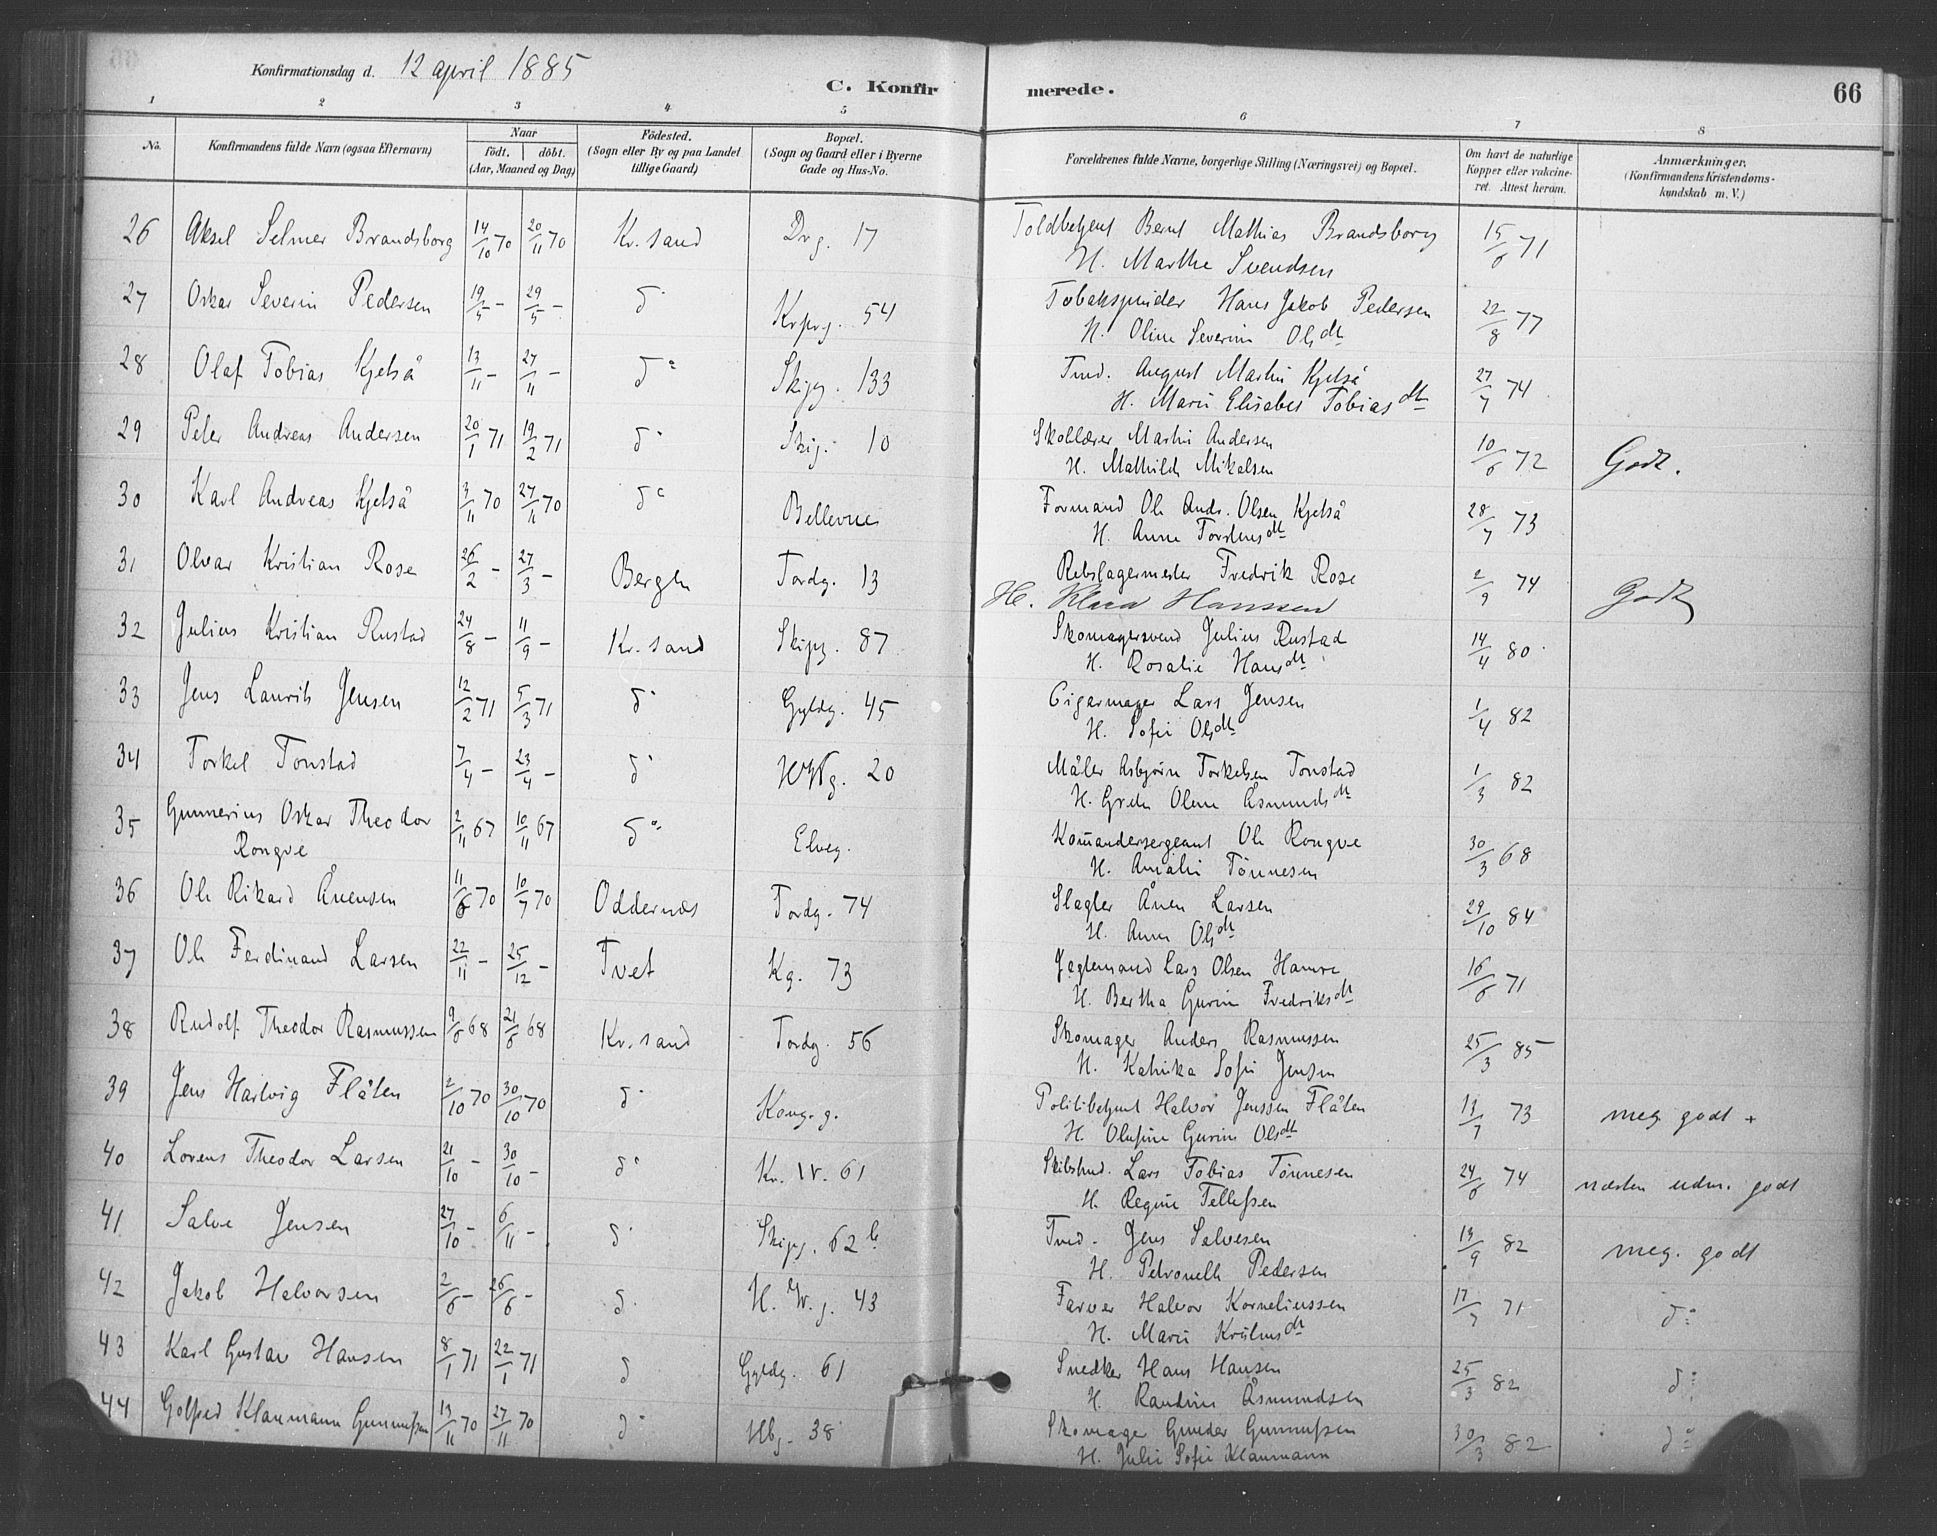 Konfirmationsdag d. 12 april 1885
C. Konfirmerede.
66
1 2 3 4 5 6 7 8
No. Konfirmandens fulde Navn (ogsaa Efternavn) Naar födt. döbt. (Aar, Maaned og Dag) Födested. (Sogn eller By og paa Landet tillige Gaard) Bopæl. (Sogn og Gaard eller i Byerne Gade og Hus-No. Forældrenes fulde Navne, borgerlige Stilling (Næringsvei) og Bopæl. Om havt de naturlige Kopper eller vakcineret. Attest herom. Anmærkninger. (Konfirmandens Kristendomskundskab m. V.)
26 Aksel Selmer Brandsborg 14/10 70 20/11 70 Kr.sand Drg. 17 Toldbetjent Bernt Mathias Brandsborg 15/6 71
H. Marthe Svendsen
27 Oskar Severin Pedersen 19/5 – 29/5 – do Krprg. 54 Tobakspinder Hans Jakob Pedersen 22/8 77
H. Oline Severin Olsdtr
28 Olaf Tobias Kjelså 13/11 – 27/11 – do Skipg. 133 Tmd. August Martin Kjelså 27/7 74
H. Marie Elisabet Tobiasdtr
29 Peter Andreas Andersen 20/1 71 19/2 71 do Skig. 10 Skollærer Martin Andersen 10/6 72 Godt.
H. Mathilde Mikalsen
30 Karl Andreas Kjelså 3/11 70 27/11 70 do Bellevue Formand Ole Andr. Olsen Kjelså 28/7 73
H. Anne Torstensdtr
31 Olvar Kristian Rose 26/2 – 27/3 – Bergen Tordg. 13 Rebslagermester Fredrik Rose 2/9 74 Godt
H. Klara Hanssen
32 Julius Kristian Rustad 24/8 – 11/9 – Kr.sand Skipg. 87 Skomagersvend Julius Rustad 14/4 80
H. Rosalie Hansdtr
33 Jens Laurits Jensen 12/2 71 5/3 71 do Gyldg. 45 Cigarmager Lars Jensen 1/4 82
H. Sofie Olsdtr
34 Torkel Tonstad 7/4 – 23/4 – do HWg. 20 Måler Asbjörn Torkelsen Tonstad 1/3 82
H. Grete Olene Åsmundsdtr
35 Gunnerius Oskar Theodor 2/11 67 10/11 67 do Elveg. Komandersergeant Ole Rongve 30/3 68
Rongve H. Amalie Tönnesen
36 Ole Rikard Ånensen 11/6 70 10/7 70 Oddernæs Tordg. 74 Slagter Ånen Larsen 29/10 84
H. Anne Olsdtr
37 Ole Ferdinand Larsen 22/11 – 25/12 – Tvet Kg. 73 Jægtemand Lars Olsen Hamre 16/6 71
H. Bertha Gurine Fredriksdtr
38 Rudolf Theodor Rasmussen 9/6 68 21/6 68 Kr.sand Tordg. 56 Skomager Anders Rasmussen 25/3 85
H. Katrika Sofie Jensen
39 Jens Hartvig Flåten 2/10 70 30/10 70 do Kong.g. Politibetjent Halvor Jenssen Flåten 13/7 73 meg. godt +
H. Olufine Gurine Olsdtr
40 Lorens Theodor Larsen 21/10 – 30/10 – do Kr. IV. 61 Skibstmd. Lars Tobias Tönnesen 24/6 74 næsten udm. godt
H. Regine Tellefsen
41 Salve Jensen 27/10 – 6/11 – do Skipg. 62 b Tmd. Jens Salvesen 13/9 82 meg. godt
H. Petronelle Pedersen
42 Jakob Halvorsen 2/6 – 26/6 – do H. W. g. 43 Farver Halvor Korneliussen 17/7 71 do
H. Marie Kristensdtr
43 Karl Gustav Hansen 8/1 71 22/1 71 do Gyldg. 61 Snedker Hans Hansen 25/3 82 do
H. Randine Åsmundsen
44 Golfred Klaumann Gunnufsen 13/11 70 27/11 70 do Hbg. 38 Skomager Gunder Gunnufsen 30/3 82 do
H. Julie Sofie Klaumann